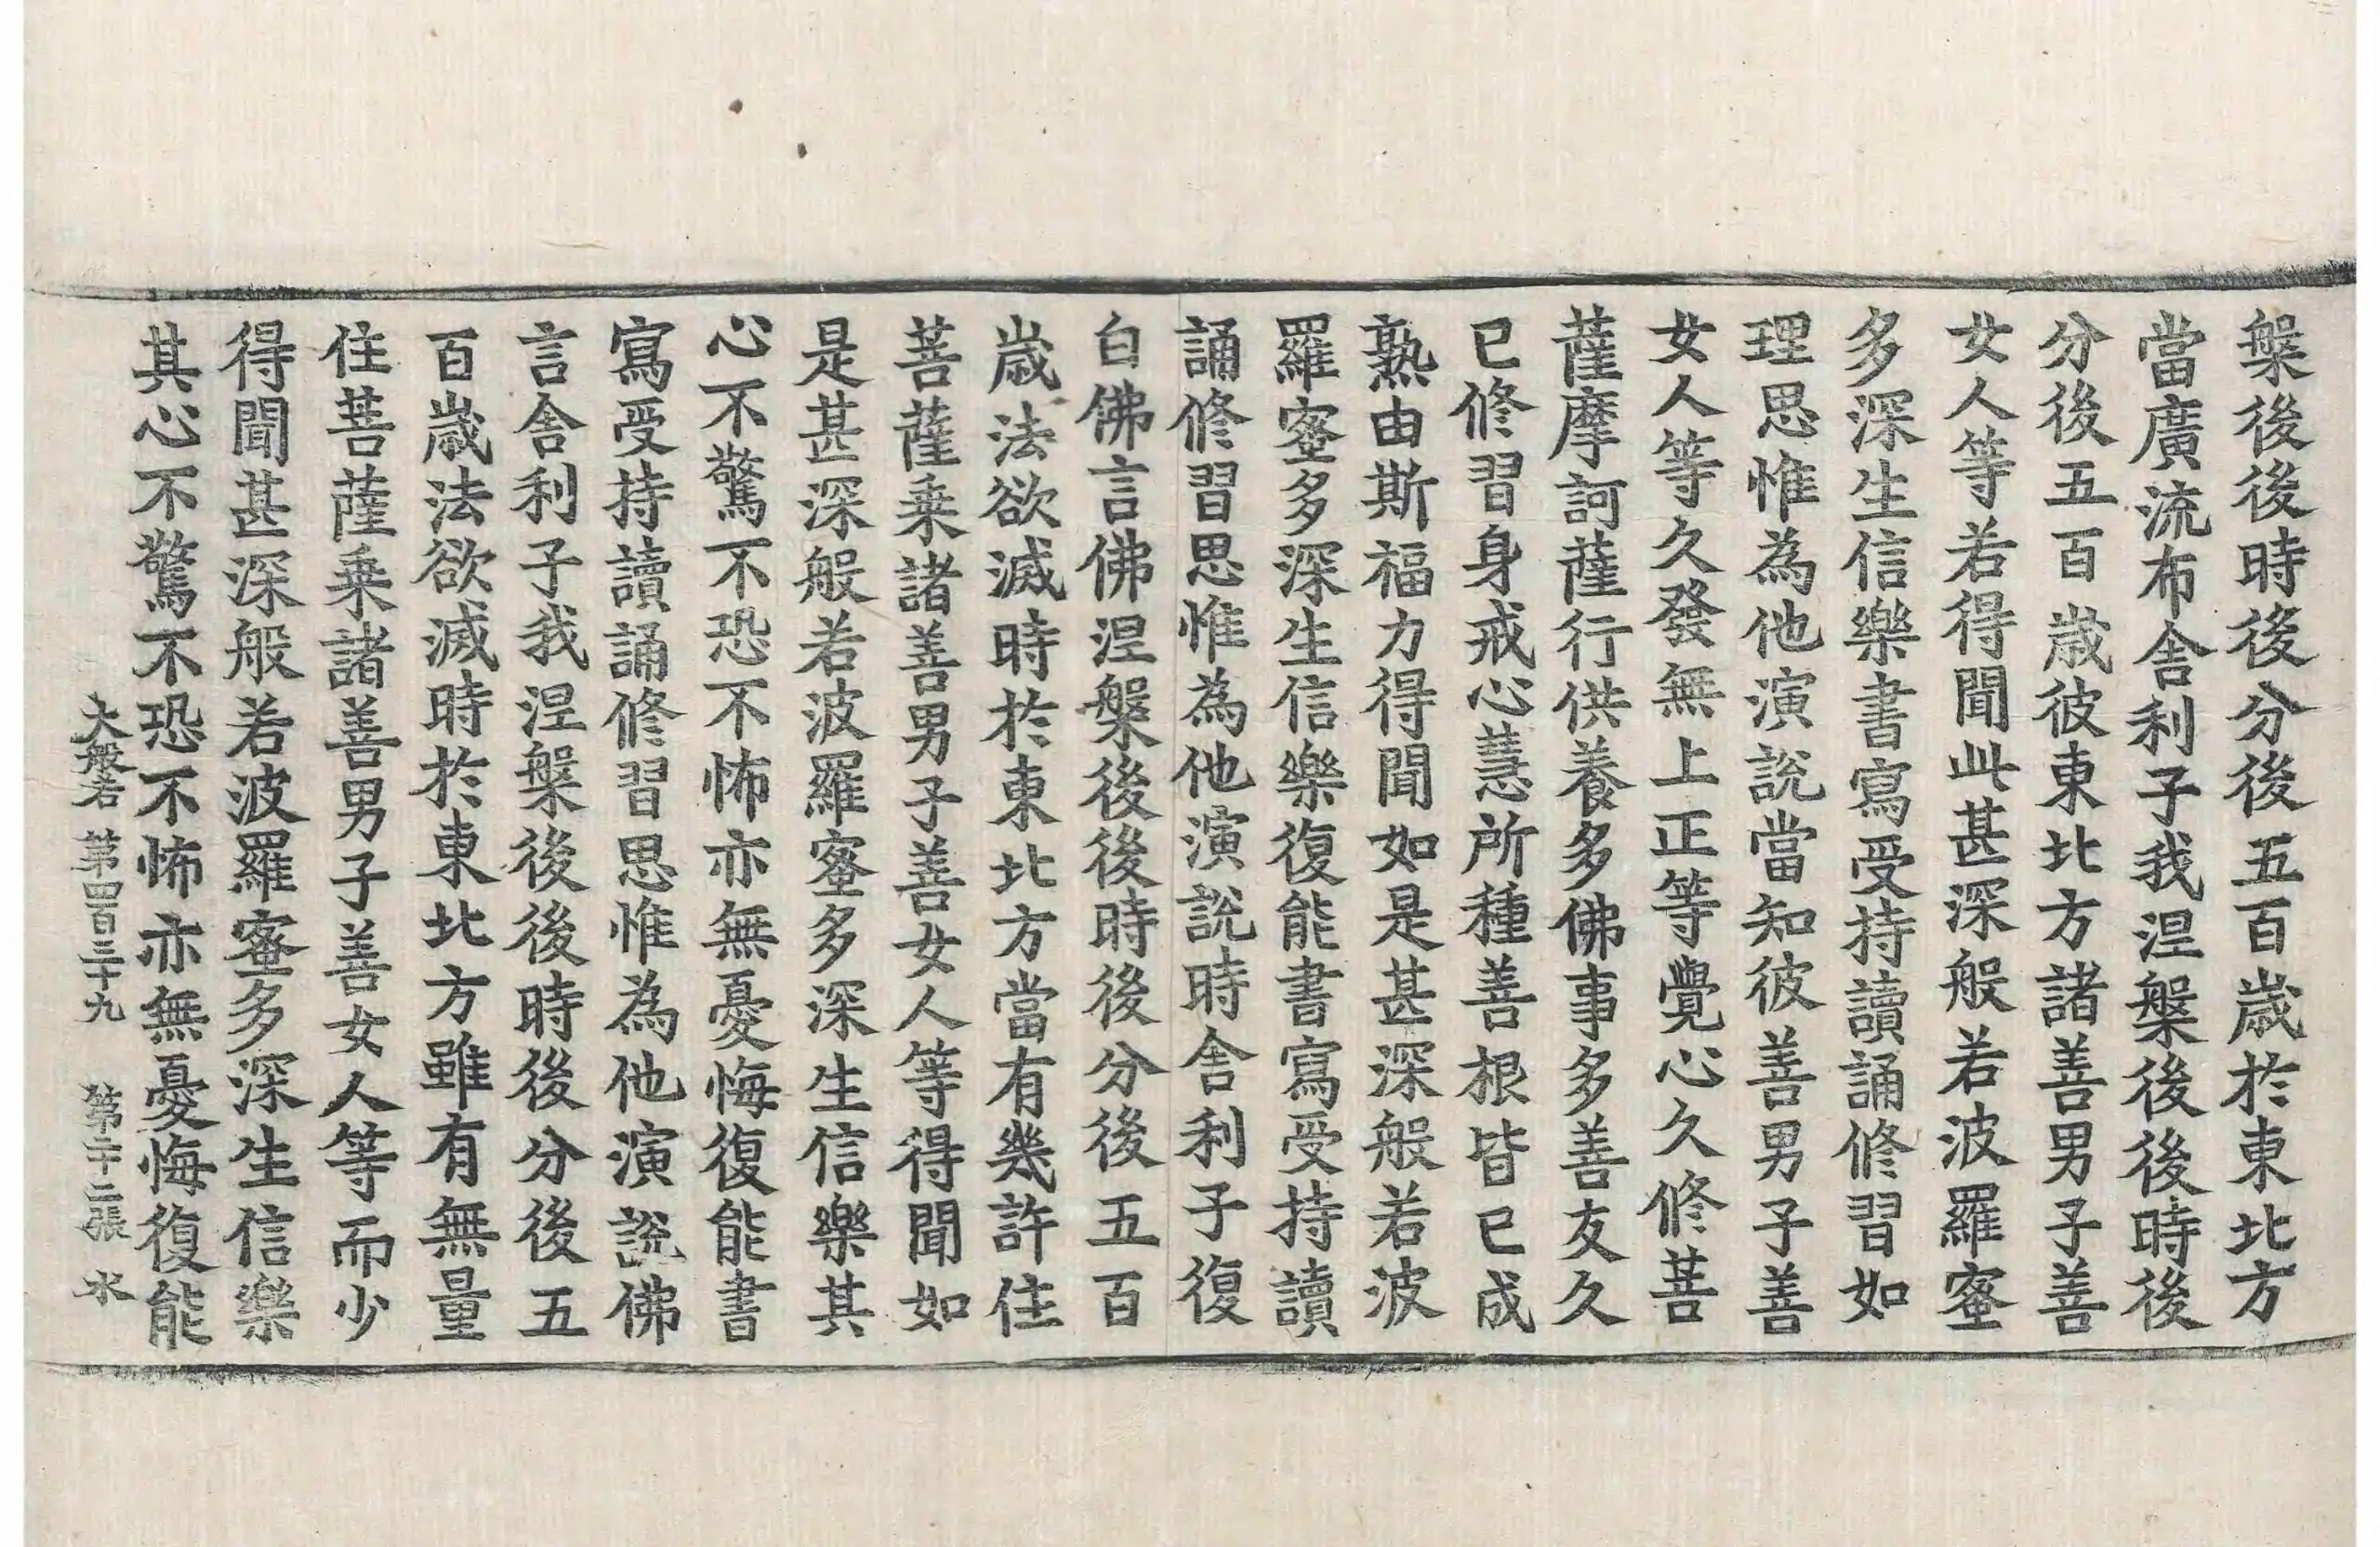 槃後後時後分後五百歲於東北方
當廣流布舍利子我涅槃後後時後
分後五百歲彼東北方諸善男子善
女人等若得聞此甚深般若波羅蜜
多深生信樂書寫受持讀誦修習如
理思惟為他演說當知彼善男子善
女人等久發無上正等覺心久修菩
薩摩訶薩行供養多佛事多善友久
已修習身戒心慧所種善根皆已成
熟由斯福力得聞如是甚深般若波
羅蜜多深生信樂復能書寫受持讀
誦修習思惟為他演說時舍利子復
白佛言佛涅槃後後時後分後五百
歲法欲滅時於東北方當有幾許住
菩薩乗諸善男子善女人等得聞如
是甚深般若波羅蜜多深生信樂其
心不驚不恐不怖亦無憂悔復能書
寫受持讀誦修習思惟為他演說佛
言舍利子我涅槃後後時後分後五
百歲法欲滅時於東北方雖有無量
住菩薩乗諸善男子善女人等而少
得聞甚深般若波羅蜜多深生信樂
其心不驚不恐不怖亦無憂悔復能
大般若 第四百三十九 第二十二張 水